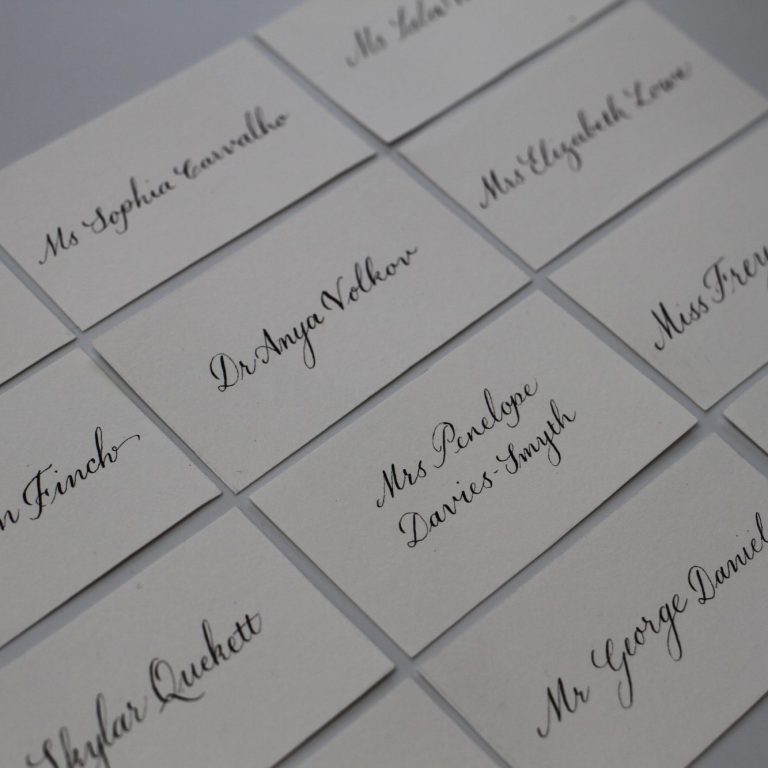 Ms
Ms Sophia Carvalho
Mrs Elizabeth Lowe
Dr Anya Volkov
Miss
Finch
Mrs Penelope
Davies-Smyth
Skylar Quekett
Mr George Daniel